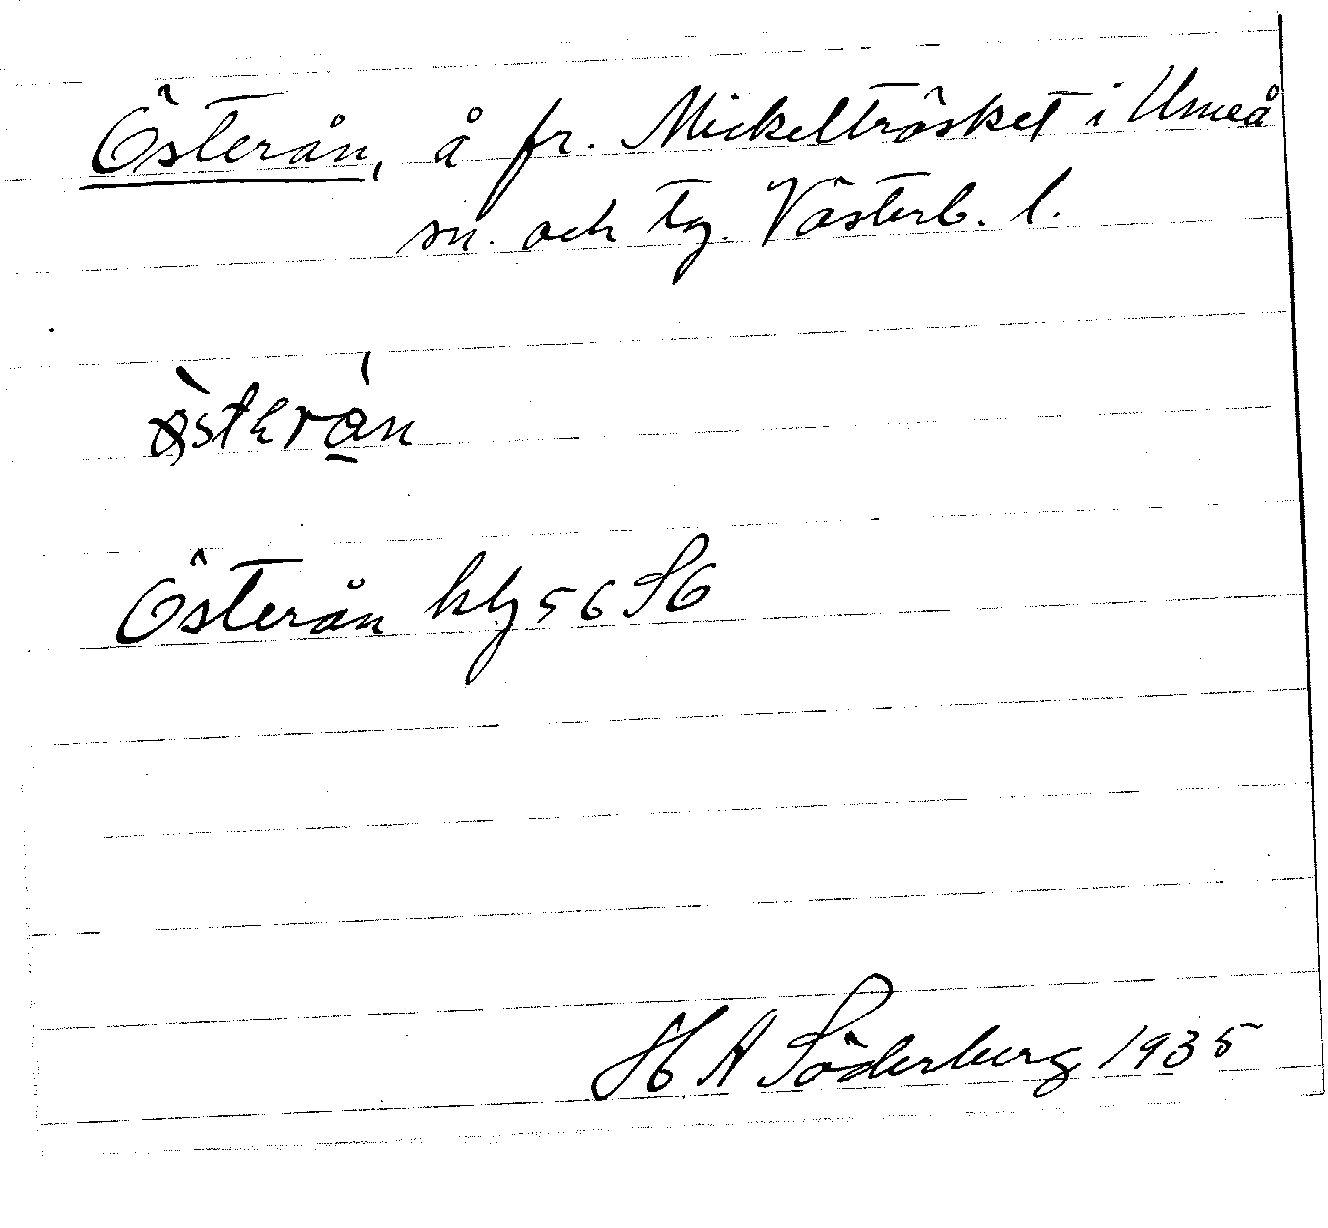 Österån, å fr. Mickelträsket i Umeå
sn. och tg. Västerb. l.
Österån kbl 56 SO
H A Söderberg 1935